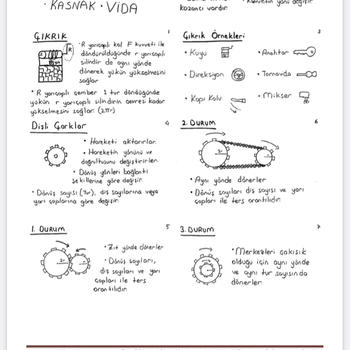 KASNAK • VİDA
kazancı vardır.
ÇIKRIK
• R yarıçaplı kol F kuvveti ile
döndürüldüğünde r yarıçaplı
silindir de aynı yönde
dönerek yükün yükselmesini
sağlar.
• R yarıçaplı çember 1 tur döndüğünde
yükün r yarıçaplı silindirin çevresi kadar
yükselmesini sağlar. (2πr)
3
Çıkrık Örnekleri
• Kuyu
• Anahtar
• Direksiyon
• Tornavida
• Kapı Kolu
• Mikser
Dişli Çarklar
4
• Hareketi aktarırlar.
• Hareketin yönünü ve
değiştirirler.
• Dönüş yönleri bağlantı
şekillerine göre değişir.
• Dönüş sayısı, diş sayılarına veya
yarı çaplarına göre değişir.
2. DURUM
6
• Aynı yönde dönerler.
• Dönüş sayıları diş sayısı ve yarı
çapları ile ters orantılıdır.
1. DURUM
5
• Zıt yönde dönerler
• Dönüş sayıları,
diş sayıları ve yarı
çapları ile ters
orantılıdır.
3. DURUM
7
• Merkezleri çakışık
olduğu için aynı yönde
ve aynı tur sayısında
dönerler.